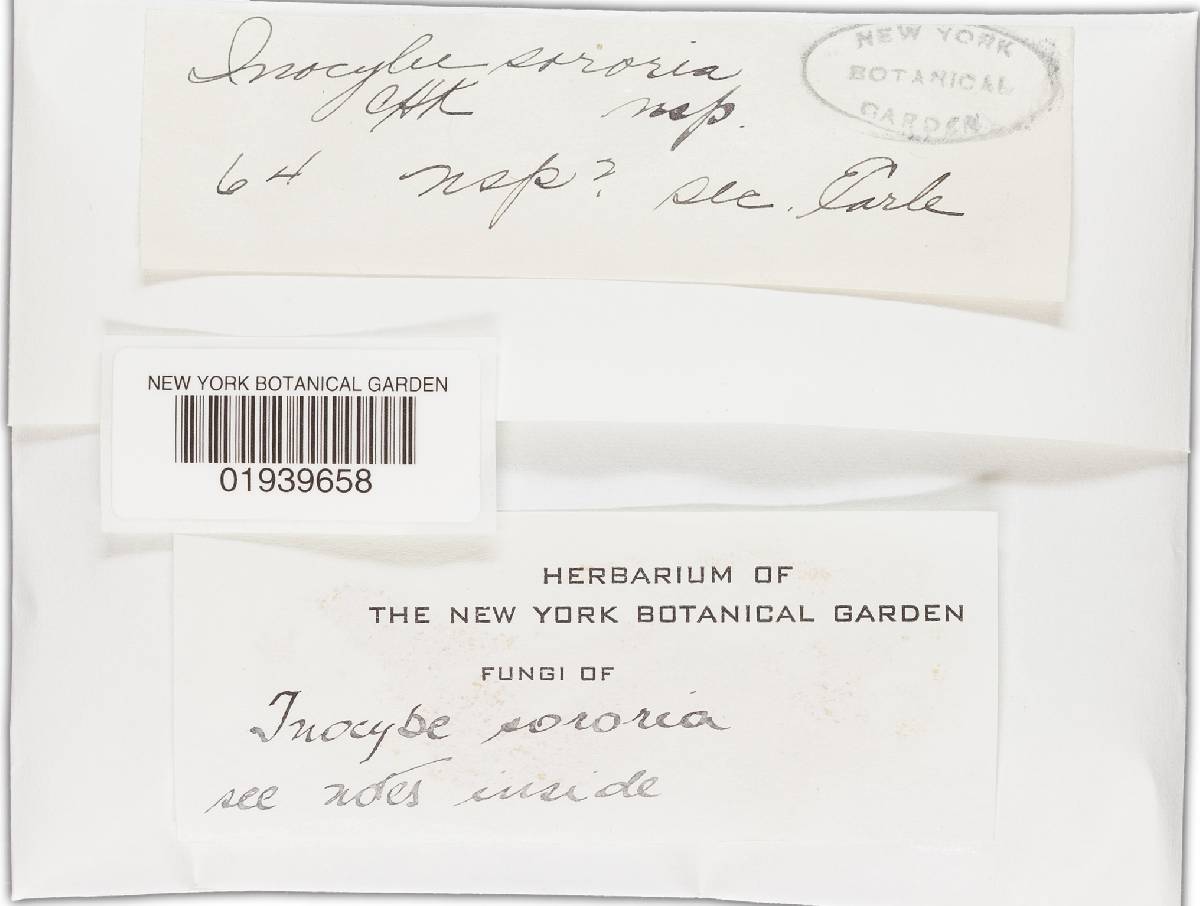 Inocybe sororia
CHK nsp.
64 nsp? sec. Earle
NEW YORK
BOTANICAL
GARDEN
NEW YORK BOTANICAL GARDEN
01939658
HERBARIUM OF
THE NEW YORK BOTANICAL GARDEN
FUNGI OF
Inocybe sororia
see notes inside